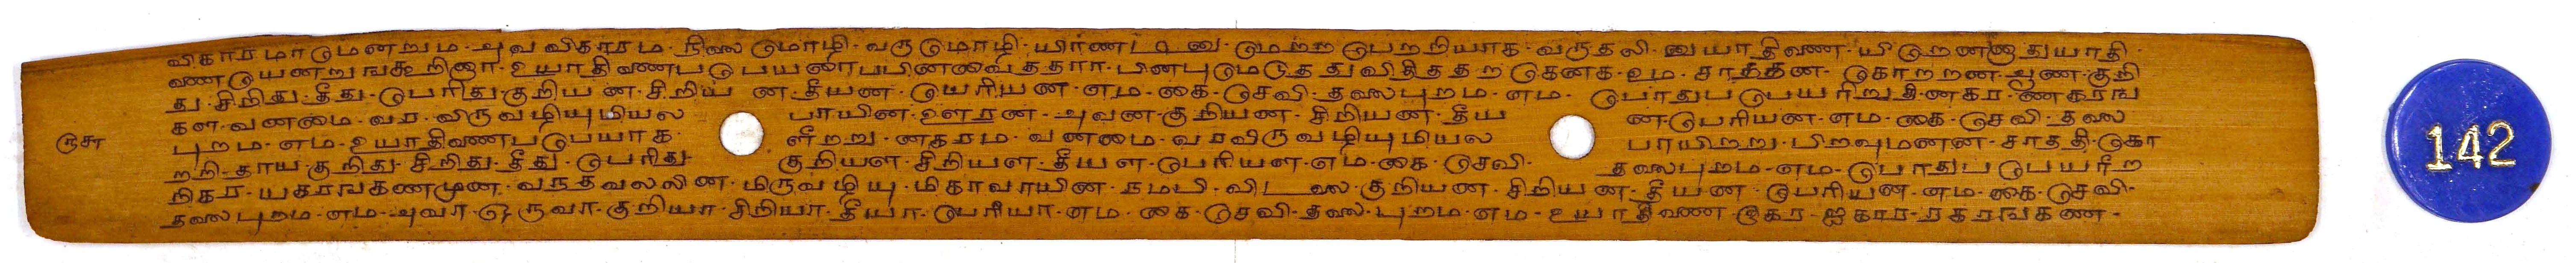 விகாரமாடுமனறும. அவ விகாரம. நிலை மொழி. வரு மொழி. யிரண டினு. மேற்ற பெற்றியாக. வருதலி. னுயாதிவண. யி றெண்ணுதுயாதி.
வண யெனறு ஙகூறினார. உயாதி வணப பெயரைப பினவைத்தார. பினபு மெடுதது விதித தற கெனக. உம. சாத்தன. கொறறன. ஆண. குறி
து. சிறிது. தீது. பெரிது. குறியன. சிறிய ன. தீயன. பெரியன. எம. கை. செவி. தலை புறம. எம. பொதுப பெயரிறுதி. னகர. ணகரங
கள. வனமை. வர. விருவழியுமியல பாயின. உளரன. அவன. குறியன. சிறியன. தீய ன. பெரியன. எம. கை. செவி. தலை
ருசா புறம. எம. உயாதிவணப பெயாக ளீறறு. னகரம. வனமை. வரவிருவழியுமியல பாயிறறு. பிறவுமனன. சாததி. கொ
றறி. தாய. குறிது. சிறிது. தீது. பெரிது. குறியள. சிறியள. தீயள. பெரியள. எம. கை. செவி. தலை புறம. எம. பொதுப பெயரீற
நிகர. யகரஙகணமுன. வநதவலலின. மிருவழியு. மிகாவாயின. நமபி. விடலை. குறியன. சிறியன. தீயன. பெரியன. எம. கை. செவி.
தலை புறம. எம. அவா. ஒருவா. குறியா. சிறியா. தீயா. பெரியா. எம. கை. செவி. தலை. புறம. எம. உயாதிவண. இகர. ஐகார. ரகரஙகண.
142